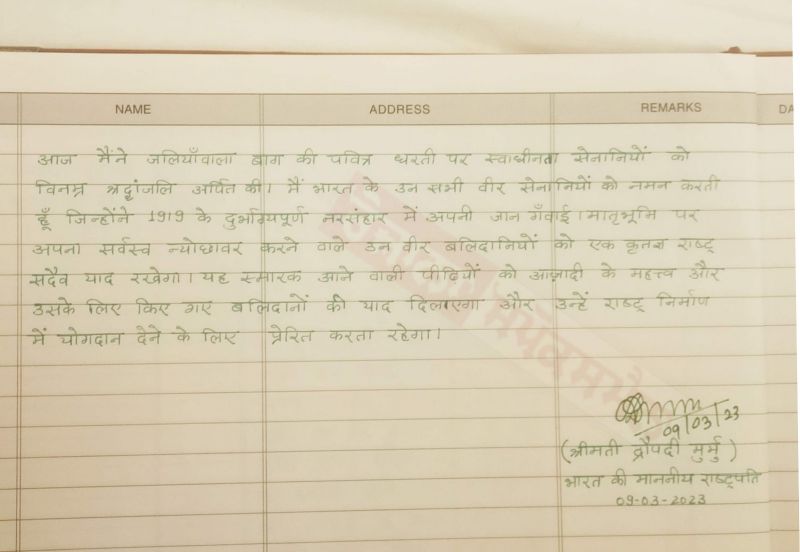 NAME ADDRESS REMARKS DA
आज मैंने जलियाँवाला बाग की पवित्र धरती पर स्वाधीनता सेनानियों को
विनम्र श्रद्धांजलि अर्पित की। मैं भारत के उन सभी वीर सेनानियों को नमन करती
हूँ जिन्होंने 1919 के दुर्भाग्यपूर्ण नरसंहार में अपनी जान गँवाई। मातृभूमि पर
अपना सर्वस्व न्योछावर करने वाले उन वीर बलिदानियों को एक कृतज्ञ राष्ट्र
सदैव याद रखेगा। यह स्मारक आने वाली पीढ़ियों को आज़ादी के महत्त्व और
उसके लिए किए गए बलिदानों की याद दिलाएगा और उन्हें राष्ट्र निर्माण
में योगदान देने के लिए प्रेरित करता रहेगा।
09/03/23
(श्रीमती द्रौपदी मुर्मु)
भारत की माननीय राष्ट्रपति
09-03-2023